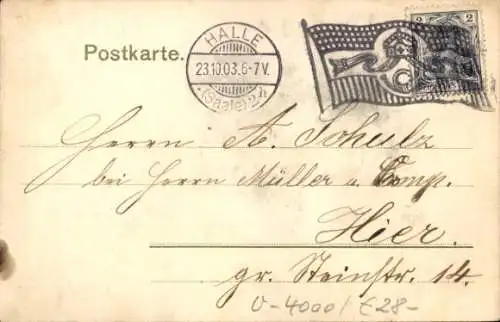 Postkarte.
HALLE
23.10.03.6-7V.
(Saale) 2
2
Herrn A. Schulz
bei Herrn Müller u. Comp.
Hier.
gr. Steinstr. 14.
€28-